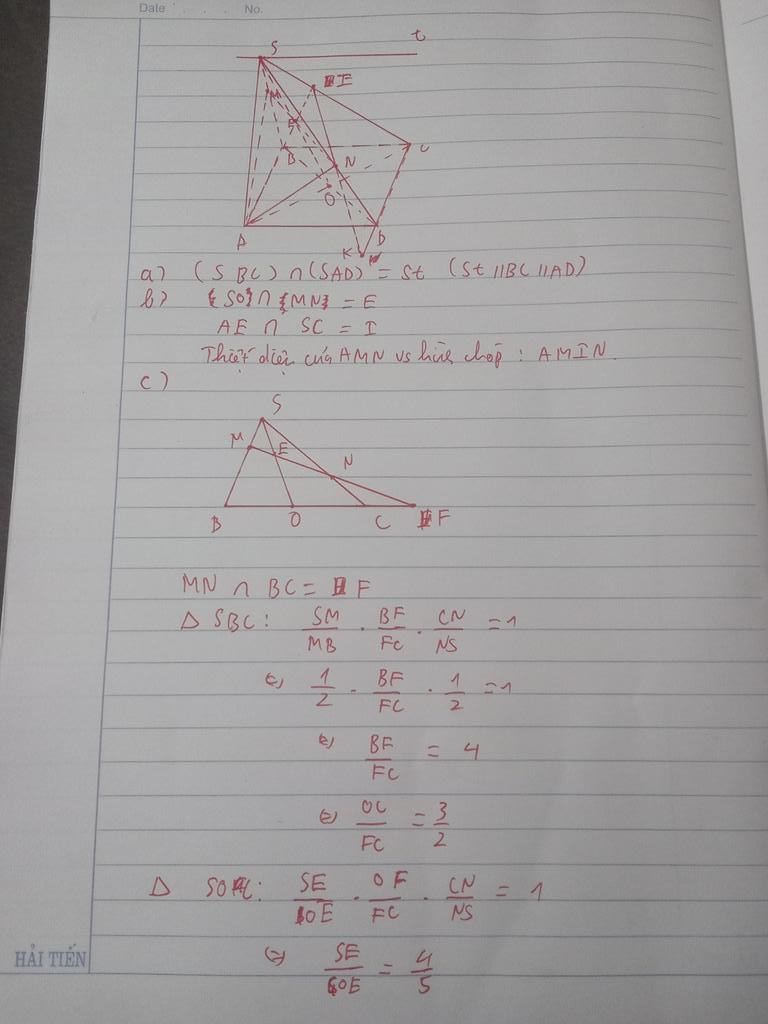 Date . . . . No.
S t
M I
E
B N C
O
A D
K
a) (SBC) ∩ (SAD) = St (St // BC // AD)
b) {SO} ∩ {MN} = E
AE ∩ SC = I
Thiết diện của AMN vs hình chóp : AMIN.
c)
S
M E
N
B O C F
MN ∩ BC = F
Δ SBC: SM/MB . BF/FC . CN/NS = 1
⇔ 1/2 . BF/FC . 1/2 = 1
⇔ BF/FC = 4
⇔ OC/FC = 3/2
Δ SOC: SE/OE . OF/FC . CN/NS = 1
⇔ SE/OE = 4/5
HẢI TIẾN